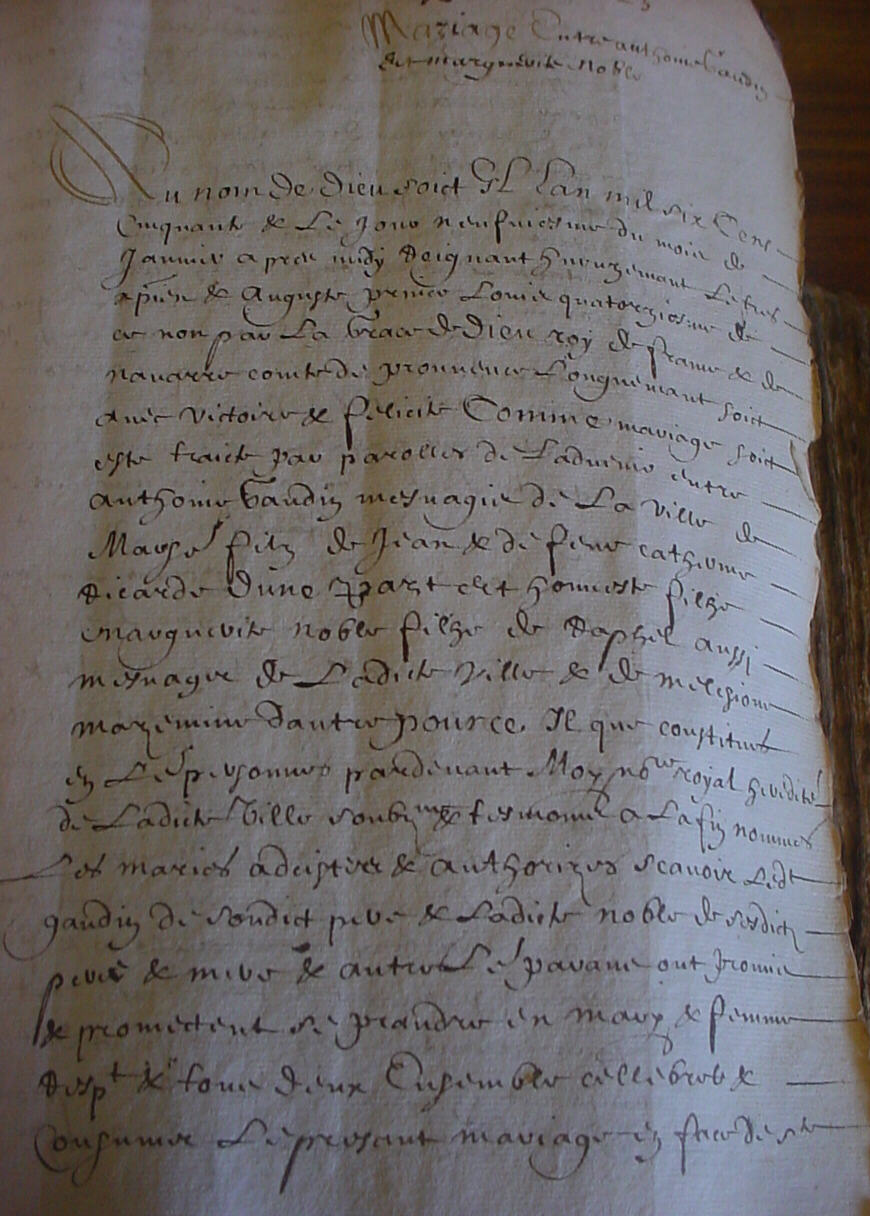 Mariage Entre anthoine Gaudin
et marguerite noble
Au nom de dieu soict Il Lan mil six Cens
Cinquante & Le Jour neufviesme du mois de
Janvier apres midy Reignant heurezemant Le tres
& Auguste prince Louis quatorziesme de
ce nom par La Grace de Dieu roy de france & de
navarre comte de prouvence Longuemant soict
avec victoire & felicite Comme mariage soict
este traicte par parolles de Ladvenir entre
anthoine Gaudin mesnagier de La ville de
filz de Jean & de feue catherine
Ricarde dune part et honneste filhe
marguerite noble filhe de Raphel aussi
mesnager de Ladicte ville & de
dautre pource Il que constitues
en Les personnes pardevant Moy no.re royal
de Ladicte Ville soubz.né & tesmoins a La fin nommes
Les maries & authorizes scavoir Led.t
gaudin de sondict pere & Ladicte noble de sesdictz
pere & mere & autres parans ont promis
& promectent se prandre en mary & femme
& tous deux Ensemble cellebrer &
Consumer Le presant mariage en face de s.te